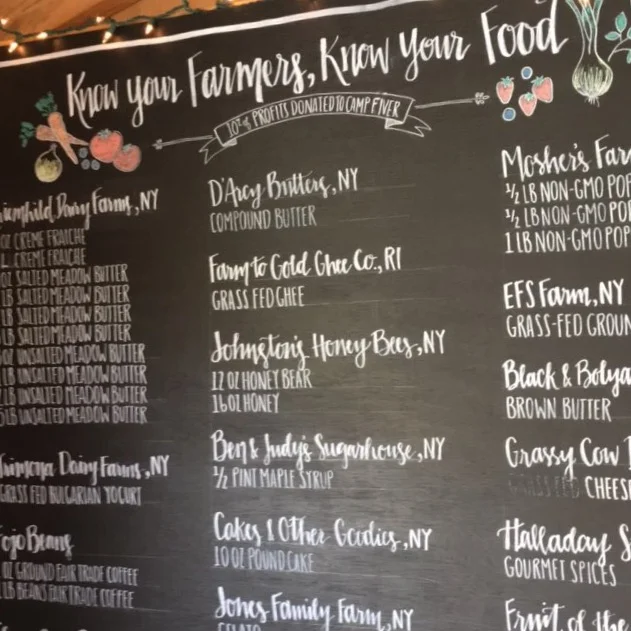 Know your Farmers, Know your Food
10% of PROFITS DONATED TO CAMP FIVER
Dairy Farms, NY
OZ CREME FRAICHE
CREME FRAICHE
OZ SALTED MEADOW BUTTER
LB SALTED MEADOW BUTTER
LB SALTED MEADOW BUTTER
LB SALTED MEADOW BUTTER
OZ UNSALTED MEADOW BUTTER
LB UNSALTED MEADOW BUTTER
LB UNSALTED MEADOW BUTTER
LB UNSALTED MEADOW BUTTER
Trimona Dairy Farms, NY
GRASS FED BULGARIAN YOGURT
Jojo Beans
OZ GROUND FAIR TRADE COFFEE
LB BEANS FAIR TRADE COFFEE
D'Arcy Butters, NY
COMPOUND BUTTER
Farm to Gold Ghee Co., RI
GRASS FED GHEE
Johnston's Honey Bees, NY
12 OZ HONEY BEAR
16 OZ HONEY
Ben & Judy's Sugarhouse, NY
1/2 PINT MAPLE SYRUP
Cakes & Other Goodies, NY
10 OZ POUND CAKE
Jones Family Farm, NY
GELATO
Mosher's Far
1/2 LB NON-GMO POP
1/2 LB NON-GMO POP
1 LB NON-GMO POP
EFS Farm, NY
GRASS-FED GROUN
Black & Bolya
BROWN BUTTER
Grassy Cow
GRASS FED CHEES
Halladay S
GOURMET SPICES
Fruit of the